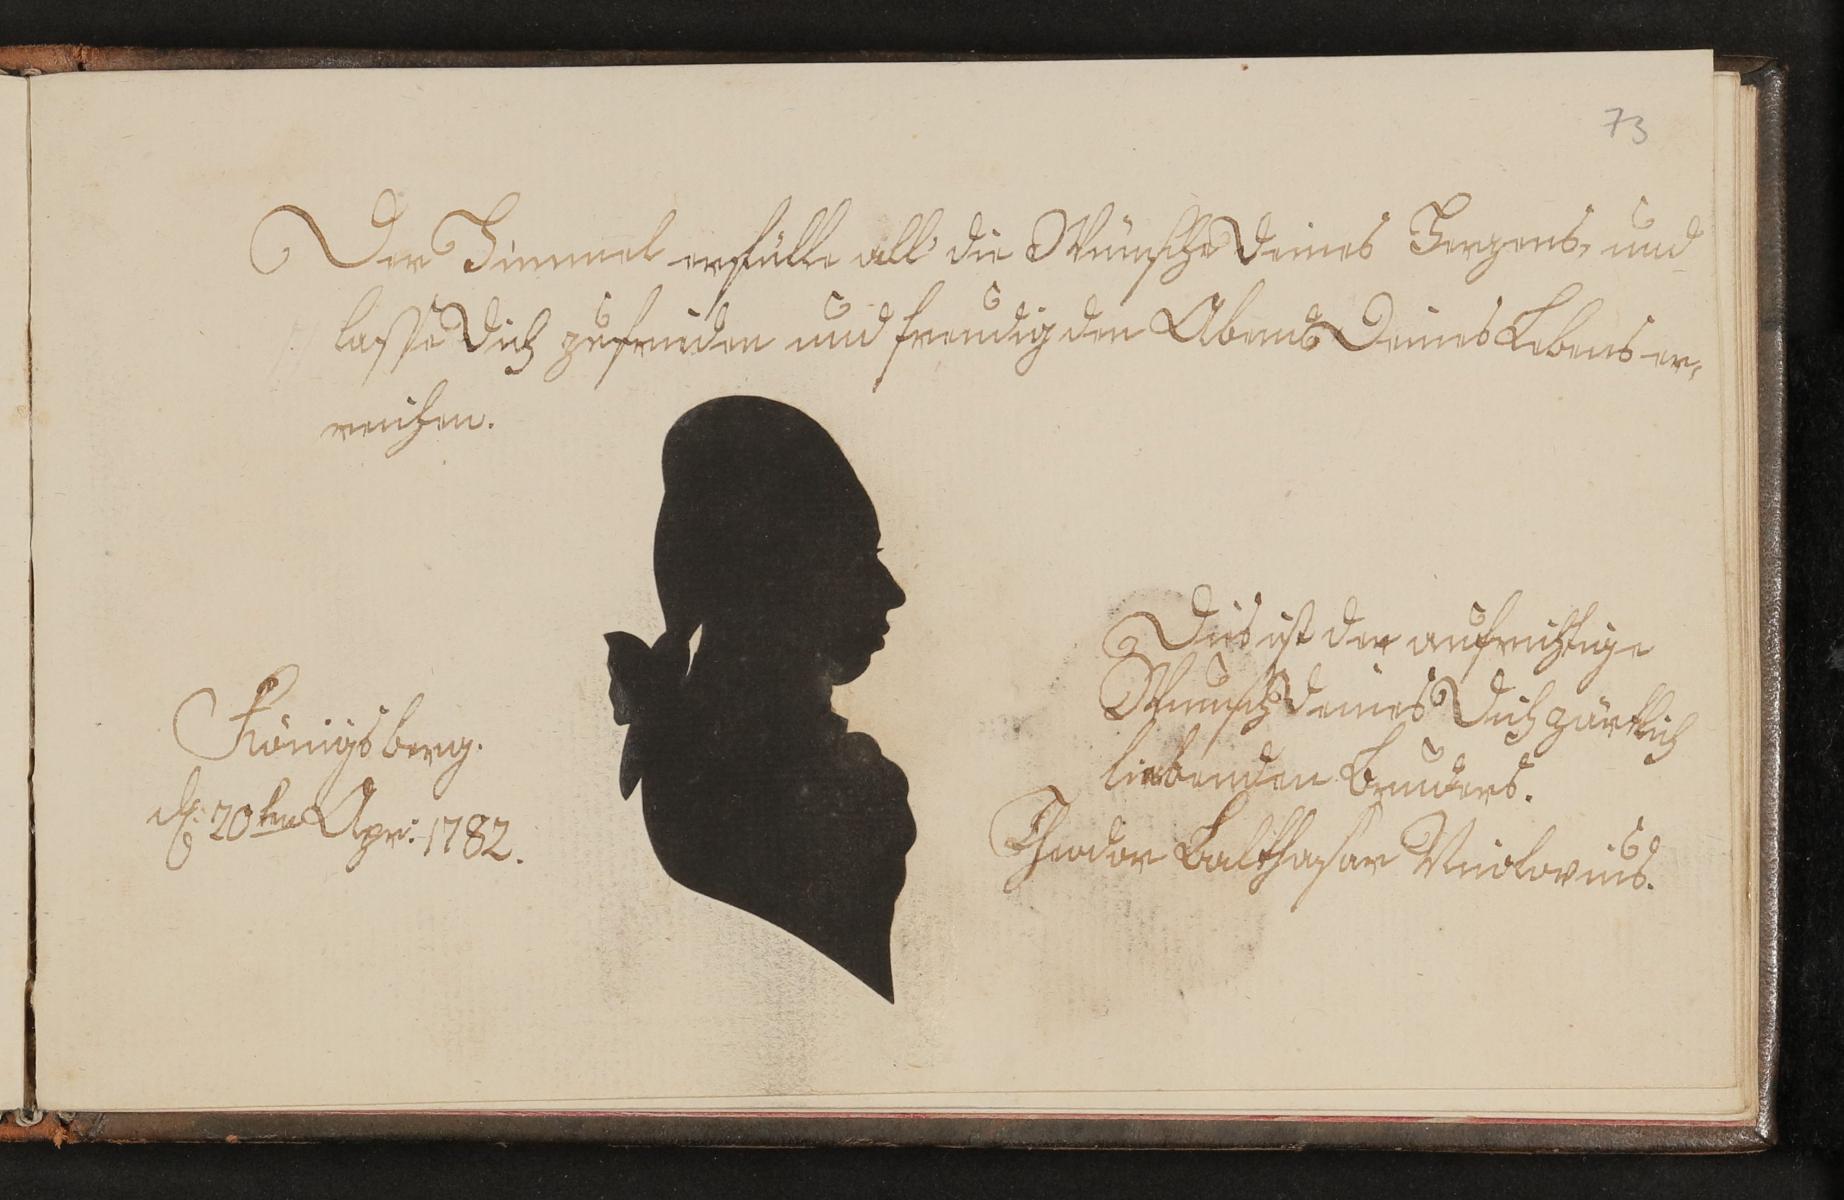 73
Der Himmel erfülle all' die Wünsche Deines Herzens, und
lasse Dich zufrieden und freudig den Abend Deines Lebens er-
reichen.
Dies ist der aufrichtige
Wunsch deines Dich zärtlich
liebenden Bruders.
Theodor Balthasar Nicolovius.
Königsberg.
d: 20ten Apr: 1782.